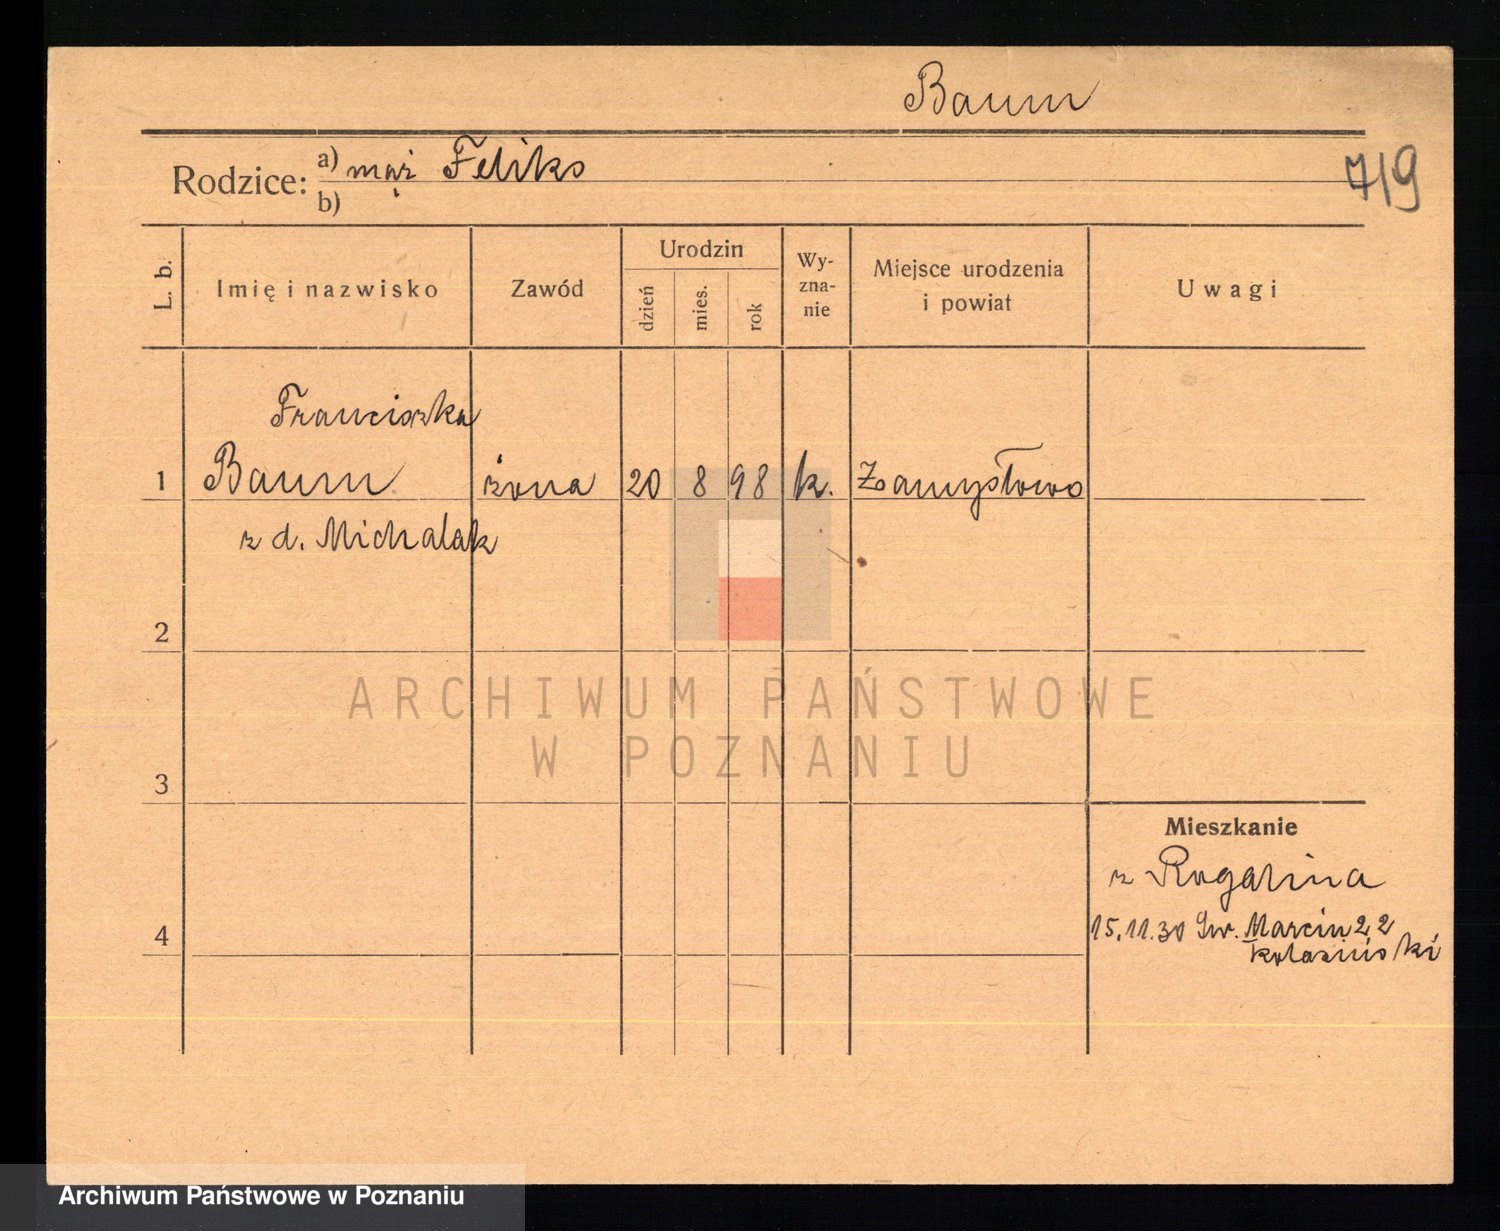 Baum
719
Rodzice: a) mąż Feliks
b)
L. b. Imię i nazwisko Zawód Urodzin dzień mies. rok Wy-zna-nie Miejsce urodzenia i powiat Uwagi
Franciszka
1 Baum żona 20 8 98 k. Zamysłowo
z d. Michalak
2
ARCHIWUM PAŃSTWOWE
W POZNANIU
3
Mieszkanie
z Rogalina
4 15.11.30 Św. Marcin 22
Kolasiński
Archiwum Państwowe w Poznaniu